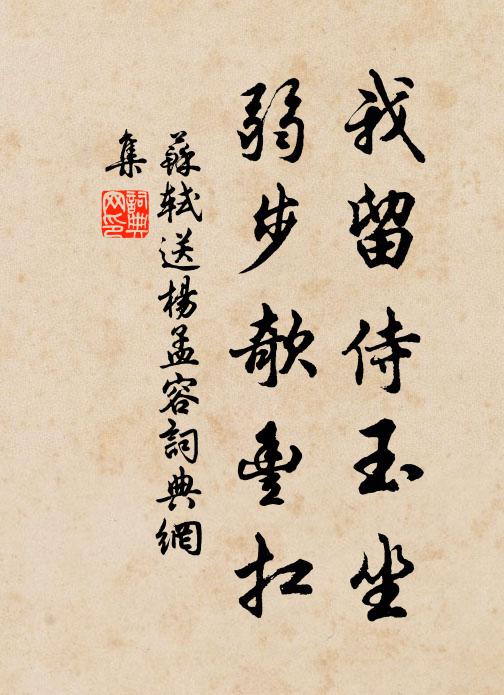 我留侍玉坐
弱步欹豐扛
蘇軾送楊孟容詞典網
集
詞典
网印